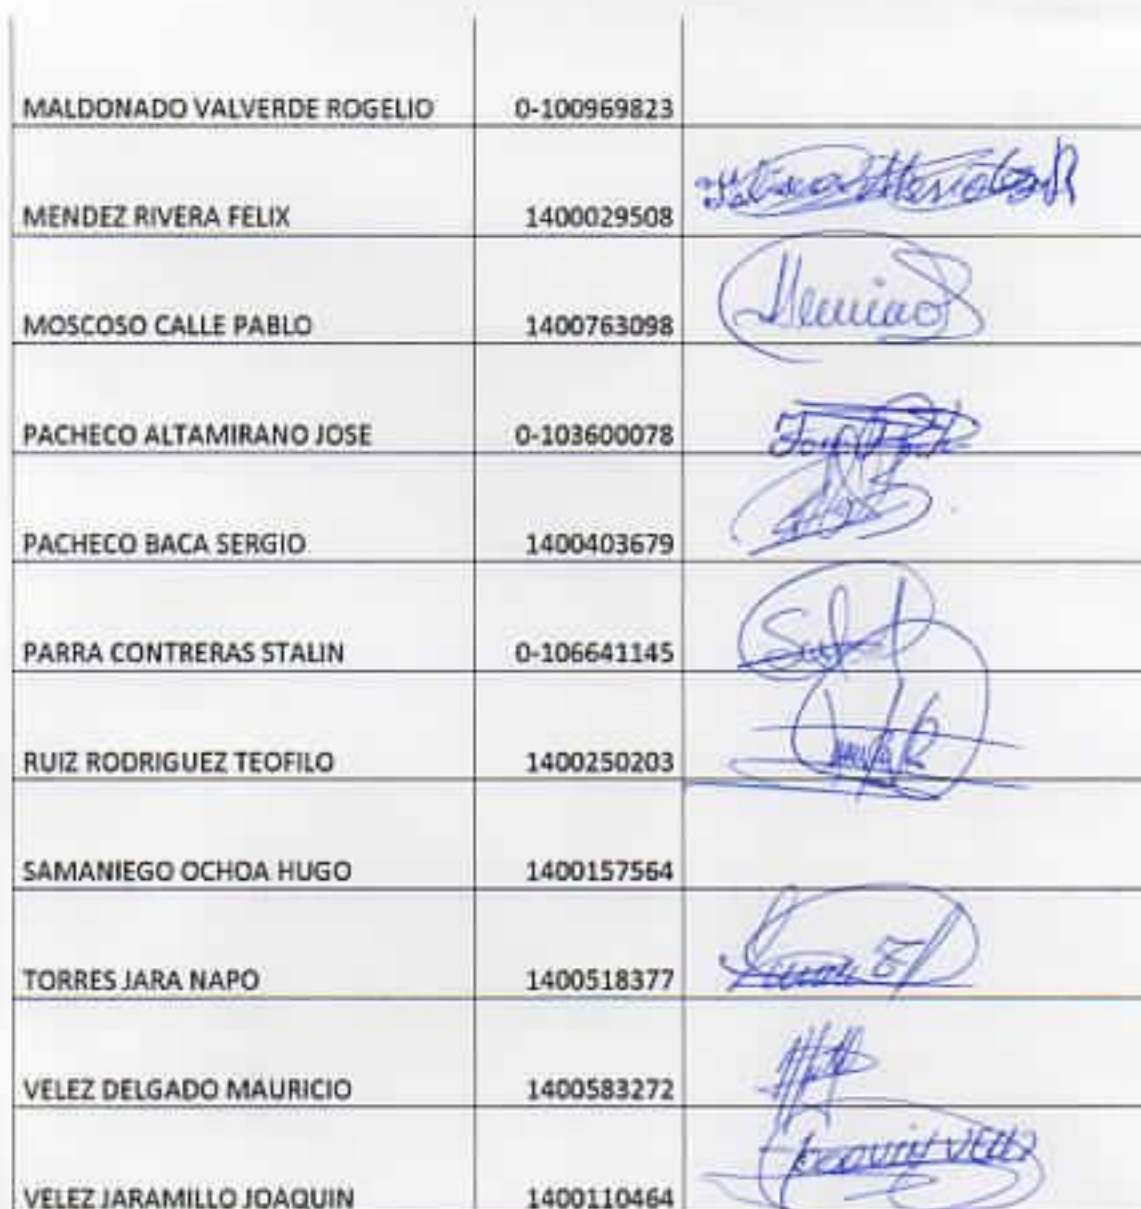 MALDONADO VALVERDE ROGELIO 0-100969823
MENDEZ RIVERA FELIX 1400029508
MOSCOSO CALLE PABLO 1400763098
PACHECO ALTAMIRANO JOSE 0-103600078
PACHECO BACA SERGIO 1400403679
PARRA CONTRERAS STALIN 0-106641145
RUIZ RODRIGUEZ TEOFILO 1400250203
SAMANIEGO OCHOA HUGO 1400157564
TORRES JARA NAPO 1400518377
VELEZ DELGADO MAURICIO 1400583272
JOAQUIN VELEZ
VELEZ JARAMILLO JOAQUIN 1400110464